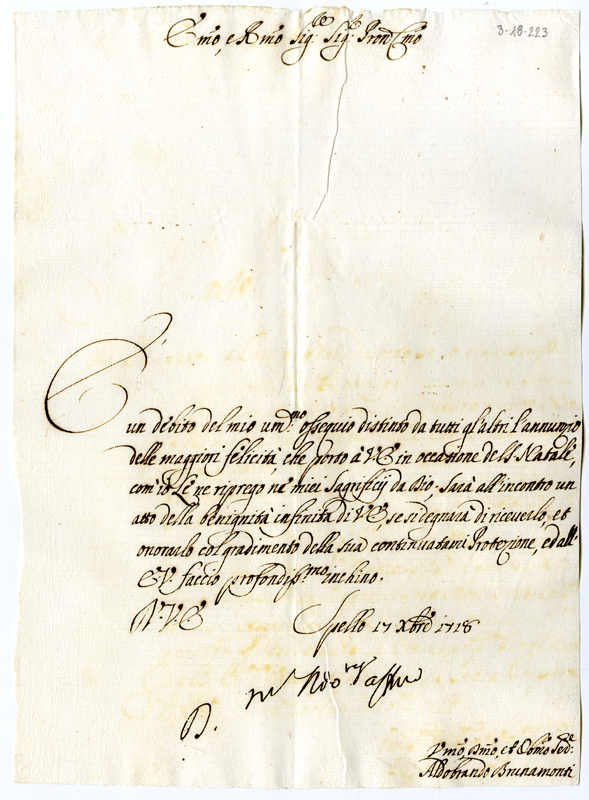 Emo, e Rmo Sig.re Sig.r Pron Cmo
3-18-223
E un debito del mio um.mo ossequio distinto da tutti gl'altri l'annunzio
delle maggiori felicità, che porto à V.E in occasione del S. Natale,
com'io Le ne riprego ne miei Sagrifizij da Dio; Sarà all'incontro un
atto della benignità infinita di V.E se si degnarà di riceverlo, et
onorarlo col gradimento della sua continuatami Protezione, ed all'
E.V. faccio profondiss.mo inchino.
D. V. E
Spello 17 Xbre 1718
B.
Vmo, Dmo, et Obmo Ser.
Aldobrando Brunamonti